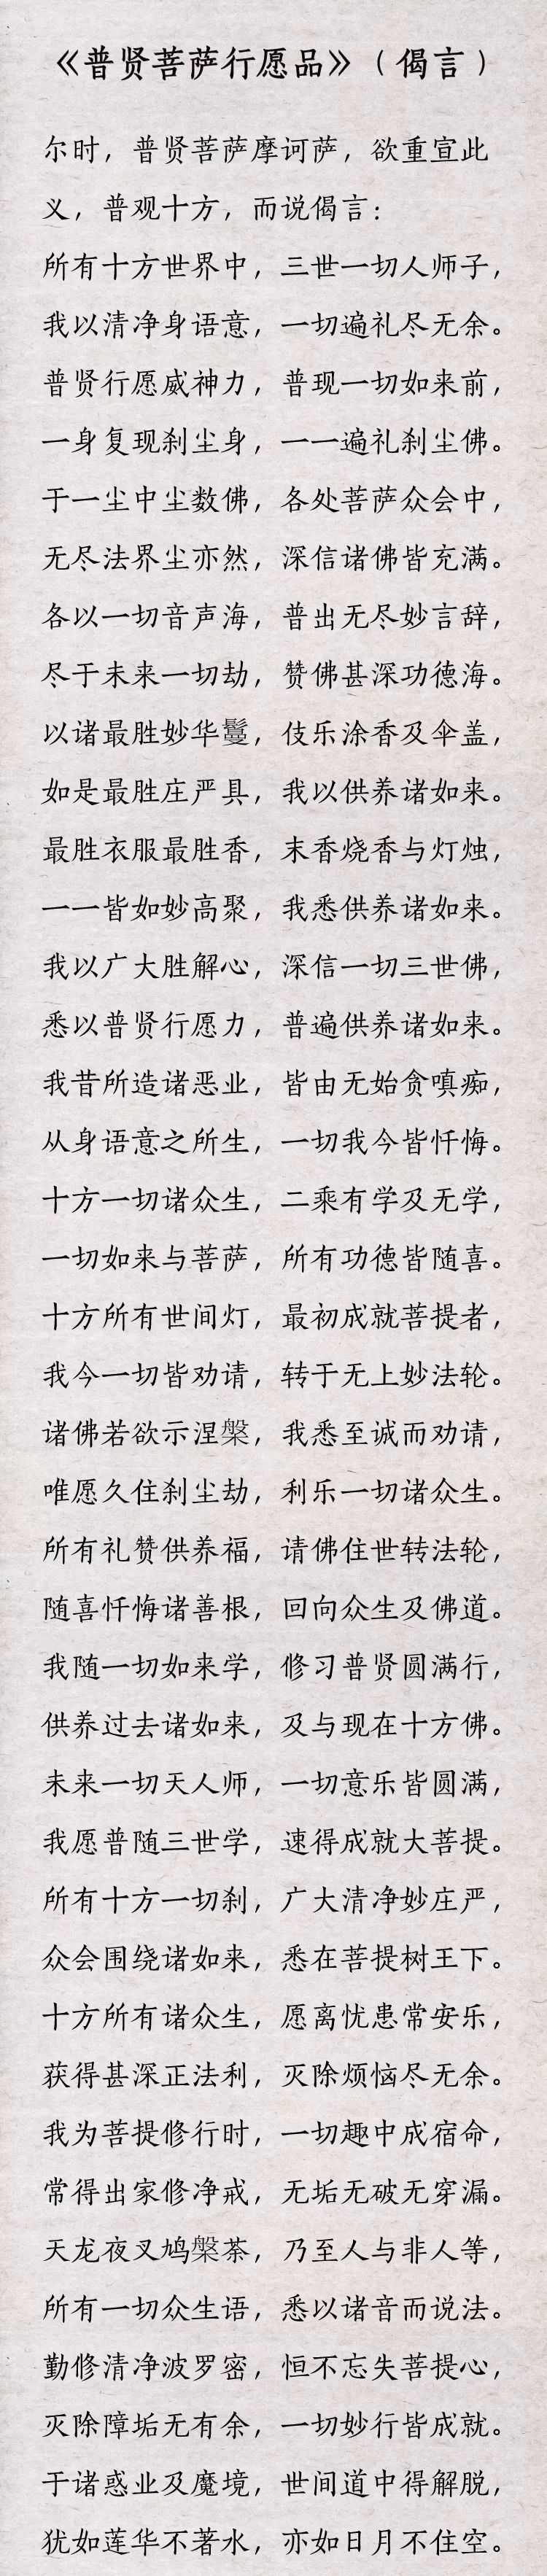 《普贤菩萨行愿品》（偈言）
尔时，普贤菩萨摩诃萨，欲重宣此
义，普观十方，而说偈言：
所有十方世界中，三世一切人师子，
我以清净身语意，一切遍礼尽无余。
普贤行愿威神力，普现一切如来前，
一身复现刹尘身，一一遍礼刹尘佛。
于一尘中尘数佛，各处菩萨众会中，
无尽法界尘亦然，深信诸佛皆充满。
各以一切音声海，普出无尽妙言辞，
尽于未来一切劫，赞佛甚深功德海。
以诸最胜妙华鬘，伎乐涂香及伞盖，
如是最胜庄严具，我以供养诸如来。
最胜衣服最胜香，末香烧香与灯烛，
一一皆如妙高聚，我悉供养诸如来。
我以广大胜解心，深信一切三世佛，
悉以普贤行愿力，普遍供养诸如来。
我昔所造诸恶业，皆由无始贪嗔痴，
从身语意之所生，一切我今皆忏悔。
十方一切诸众生，二乘有学及无学，
一切如来与菩萨，所有功德皆随喜。
十方所有世间灯，最初成就菩提者，
我今一切皆劝请，转于无上妙法轮。
诸佛若欲示涅槃，我悉至诚而劝请，
唯愿久住刹尘劫，利乐一切诸众生。
所有礼赞供养福，请佛住世转法轮，
随喜忏悔诸善根，回向众生及佛道。
我随一切如来学，修习普贤圆满行，
供养过去诸如来，及与现在十方佛。
未来一切天人师，一切意乐皆圆满，
我愿普随三世学，速得成就大菩提。
所有十方一切刹，广大清净妙庄严，
众会围绕诸如来，悉在菩提树王下。
十方所有诸众生，愿离忧患常安乐，
获得甚深正法利，灭除烦恼尽无余。
我为菩提修行时，一切趣中成宿命，
常得出家修净戒，无垢无破无穿漏。
天龙夜叉鸠槃茶，乃至人与非人等，
所有一切众生语，悉以诸音而说法。
勤修清净波罗密，恒不忘失菩提心，
灭除障垢无有余，一切妙行皆成就。
于诸惑业及魔境，世间道中得解脱，
犹如莲华不著水，亦如日月不住空。